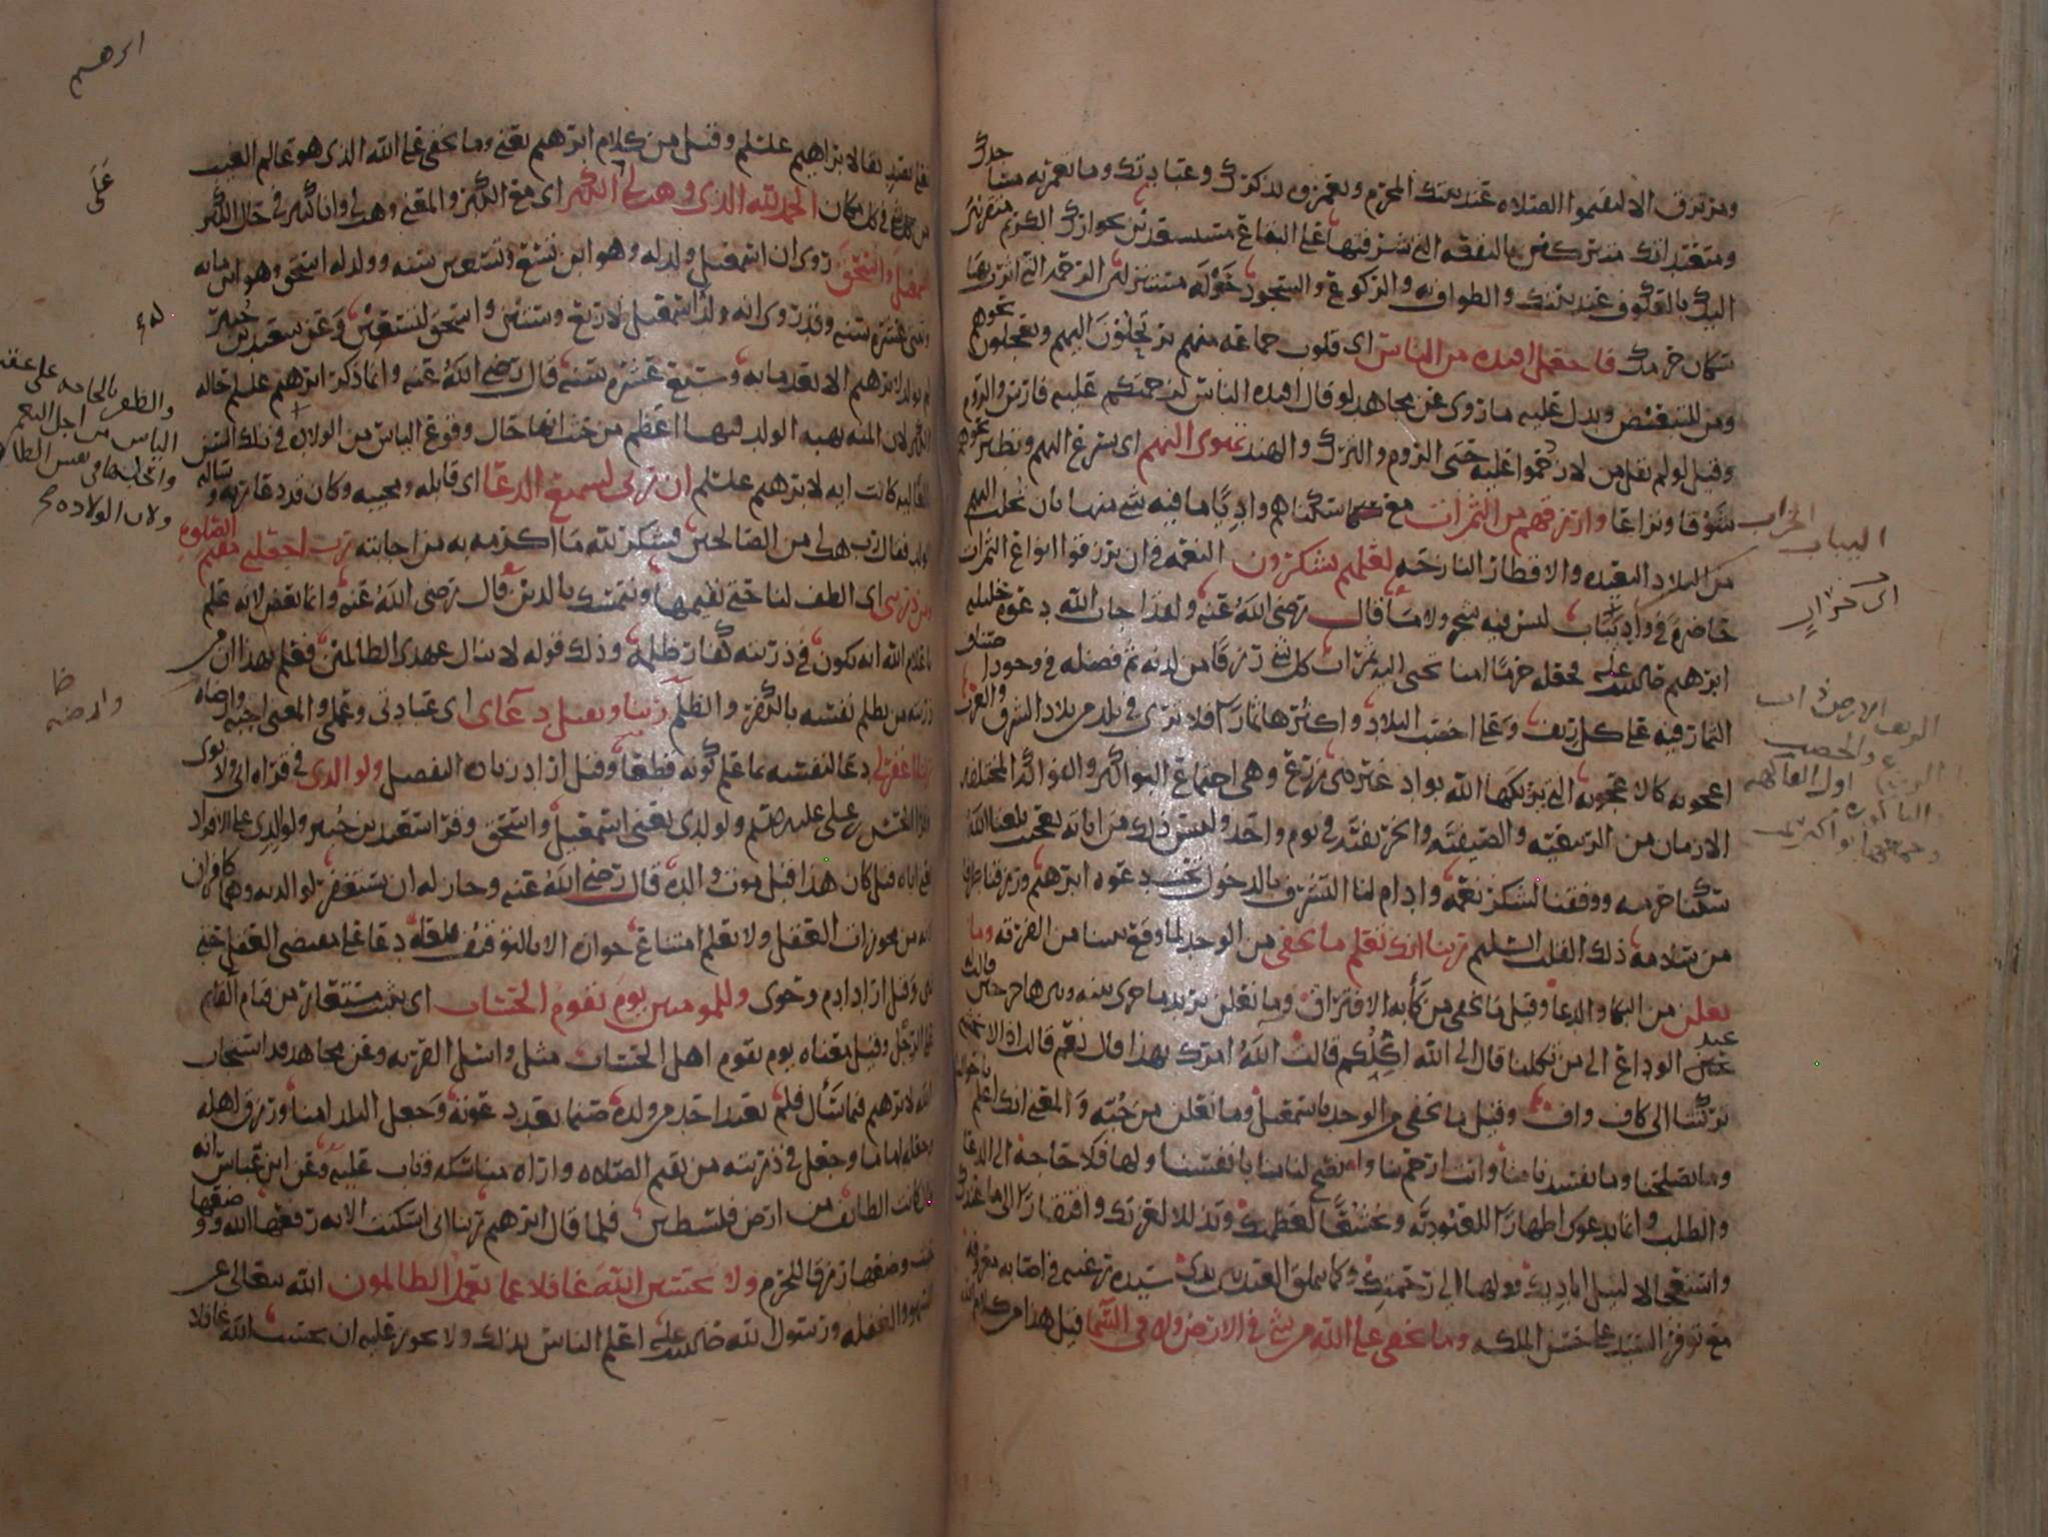 ومرتزق الا ليقيموا الصلاه عند بيتك المحرم ويعمروه بذكرك وعبادتك وما تعمر به مساجدك
ومتعبداتك متبركين بالبقعه التي شرفتها على البقاع مستسعدين بجوارك الكريم متقربين
اليك بالعكوف عند بيتك والطواف به والركوع والسجود حوله مستنزلين الرحمه التي اثرت بها
سكان حرمك فاجعل افئده من الناس اى قلوب جماعه منهم يرتحلون اليهم ويعجلون نحوهم
ومن للتبعيض ويدل عليه ما روى عن مجاهد لو قال افئده الناس لزحمتكم عليه فارس والروم
وقيل لو لم يقل من لازدحموا عليه حتى الروم والترك والهند تهوى اليهم اى تسرع اليهم وتطير نحوهم
شوقا ونزاعا وارزقهم من الثمرات مع سكناهم واديا ما فيه شى منها بان تجلب اليهم
من البلاد البعيده والاقطار النازحه لعلهم يشكرون النعمه في ان يرزقوا انواع الثمرات
حاضرة في واد يباب ليس فيه شجر ولا ماء قال رضى الله عنه ولهذا اجاب الله دعوة خليله
ابرهيم صلى الله عليه فجعله حرما امنا تجبى اليه ثمرات كل شى رزقا من لدنه ثم فضله في وجود اصناف
الثمار فيه على كل ريف وعلى اخصب البلاد واكثرها ثمارا فلا ترى في بلد من بلاد الشرق والغرب
اعجوبه كالاعجوبه التي يريكها الله بواد غير ذي زرع وهى اجتماع البواكر والفواكه المختلفه
الازمان من الربيعيه والصيفيه والخريفيه في يوم واحد وليس ذلك من اياته بعجب بلغنا الله
سكنا حرمه ووفقنا لشكر نعمه وادام لنا التشرف بالدخول تحت دعوه ابرهيم ورزقنا طرفا
من سلامة ذلك القلب السليم ربنا انك تعلم ما نخفى من الوجد لما وقع بيننا من الفرقه وما
نعلن من البكا والدعا وقيل ما نخفى من كأبه الافتراق وما نعلن يريد ما جرى بينه وبين هاجر حين قالت
عند الوداع الى من تكلنا قال الى الله اكلكم قالت الله امرك بهذا قال نعم قالت اذا لا نخشى
تركتنا الى كاف وقيل ما نخفى من الوجد باسمعيل وما نعلن من حبه والمعنى انك اعلم باحوالنا
وما يصلحنا وما يفسدنا منا وانت ارحم بنا وانصح لنا منا بانفسنا ولها فلا حاجة الى الدعا
والطلب وانما ندعوك اظهارا للعبوديه وتخشعا لعظمتك وتذللا لعزتك وافتقارا الى ما عندك
واستعجالا لنيل اياديك وولها الى رحمتك وكما يتملق العبد بين يدى سيده رغبة في اصابه معروفه
مع توفر السيد على حسن الملكه وما يخفى على الله من شى في الارض ولا في السما قيل هذا من كلام الله
اليباب الخراب
اى خراب
ابرهيم
تعالى تصديقا لابراهيم عليه السلم وقيل من كلام ابرهيم يعنى وما يخفى على الله الذى هو عالم الغيب
في كل مكان الحمد لله الذى وهب لى على الكبر اى مع الكبر والمعنى وهب لى وانا كبير في حال الكبر
اسمعيل واسحق روى ان اسمعيل ولد له وهو ابن تسع وتسعين سنه وولد له اسحق وهو ابن مايه
وثنتى عشرة سنه وقد روى انه ولد اسمعيل لاربع وستين واسحق لتسعين وعن سعيد بن جبير
لم يولد لابرهيم الا بعد مايه وسبع عشرة سنه قال رضى الله عنه وانما ذكر ابرهيم عليلم حاله
الكبر لان المنه بهبه الولد فيها اعظم من حيث انها حال وقوع الياس من الولاده في تلك السن
العاليه كانت ايه لابرهيم عليلم ان ربى لسميع الدعا اى قابله ومجيبه وكان قد دعا ربه وساله
الولد فقال رب هب لى من الصالحين فشكر لله ما اكرمه به من اجابته رب اجعلنى مقيم الصلوه
ومن ذريتى اى الطف لنا حتى نقيمها ونتمسك بالدين قال رضى الله عنه وانما بعض لانه علم
باعلام الله انه يكون في ذريته كفار ظلمه وذلك قوله لا ينال عهدى الظالمين فعلم بهذا ان من
ذريته من يظلم نفسه بالكفر والظلم ربنا وتقبل دعاى اى عبادتى وعملى والمعنى اجبه وارضاه
ربنا اغفر لى دعا لنفسه بما علم كونه قطعا وقيل اراد زيادة التفضل ولوالدى في قراه ابى ولابوى
وقرا الحسن بن على عليهما السلم ولولدى يعنى اسمعيل واسحق وقرا سعيد بن جبير ولوالدى على الافراد
يعنى اباه قيل كان هذا قبل موت والده قال رضى الله عنه وجاز له ان يستغفر لوالديه وهما كافران
لانه من مجوزات العقل ولا يعلم امتناع جوازه الا بالتوقيف فلعله دعا على مقتضى العقل حتى
نهى وقيل اراد ادم وحوى وللمومنين يوم يقوم الحساب اى يثبت مستعار من قيام القايم
على الرجل وقيل معناه يوم يقوم اهل الحساب مثل واسئل القريه وعن مجاهد قد استجاب
الله لابرهيم فيما سأل فلم يعبد احد من ولده صنما بعد دعوته وجعل البلد امنا ورزق اهله
وجعله اماما وجعل في ذريته من يقيم الصلاه واراه مناسكه وتاب عليه وعن ابن عباس انه
قال كانت الطائف من ارض فلسطين فلما قال ابرهيم ربنا انى اسكنت الايه رفعها الله ووضعها
حيث وضعها رزقا للحرم ولا تحسبن الله غافلا عما يعمل الظالمون الله يتعالى عن
السهو والغفله ورسول الله صلى الله عليه اعلم الناس بذلك ولا يجوز عليه ان يحسب الله غافلا